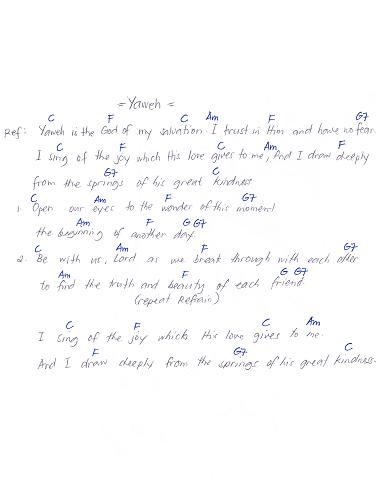 = Yaweh =
C F C Am F G7
Ref: Yaweh is the God of my salvation. I trust in Him and have no fear.
C F C Am F
I sing of the joy which His love gives to me, And I draw deeply
G7 C
from the springs of his great kindness.
C Am F G7
1. Open our eyes to the wonder of this moment
Am F G G7
the beginning of another day.
C Am F G7
2. Be with us, Lord as we break through with each other
Am F G G7
to find the truth and beauty of each friend.
(repeat Refrain)
C F C Am
I sing of the joy which His love gives to me.
F G7 C
And I draw deeply from the springs of his great kindness.